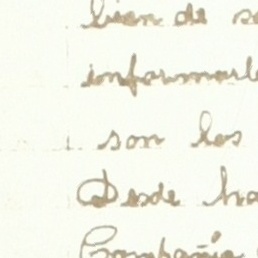 bien de
informarle
son los
Desde
Compañia